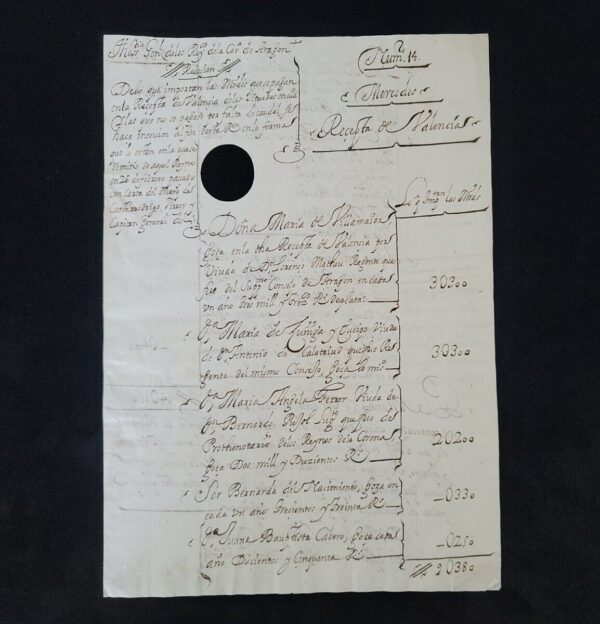 Thess.ria Gen.l de los Rey.s de la Cor.a de Aragon
Relacion
Delo que importan las Mrdes que se pagan
en la Recepta de Valencia
que no se pagan por falta de caudal, se
hace mencion al fin desta R.on en la forma
que lo estan en la que se
remitio de aquel Reyno
en 26 de febrero pasado
con Carta del Marq.s de
Castel Rodrigo, Virrey y
Capitan General de el
Num.o 14
Mercedes
Recepta de Valencia
Lo q. Imp.tan las Mrdes
Doña Maria de Villamayor
goça en la dha Recepta de Valencia por
Viuda de D.n Lorenço Matheu Regente que
fue del Sup.mo Consejo de Aragon en cada
un año tres mill y trez.os R.s de plata
30300
D.a Maria de Zuñiga y Viuda
de D.n Antonio de Calatayud que fue Re
gente del mismo Consejo, goça lo mis.o
30300
D.a Maria Angela Ferrer Viuda de
D.n Bernardo Pujol Lug.te que fue del
Prothonotario de los Reynos de la Corona
goça Dos mill y Duzientos R.s
20200
Sor Bernarda del Nacimiento, goça en
cada un año Trecientos y Treinta R.s
0330
D.a Juana Bauptista Cabero, goça cada
año Ducientos y Cinquenta R.s
0250
90380